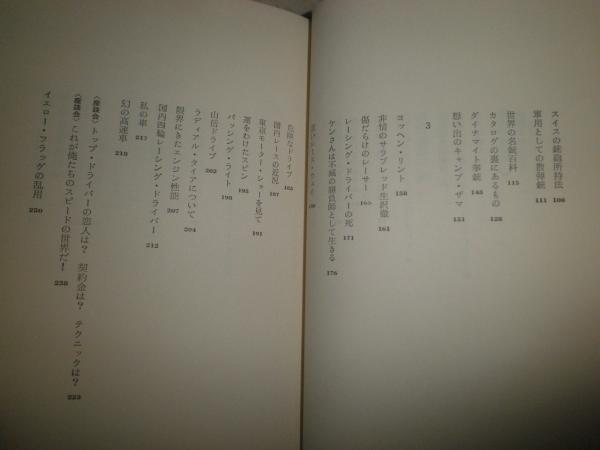 スイスの銃砲所持法 106
軍用としての散弾銃 111
世界の名銃百科 115
カタログの裏にあるもの 128
ダイナマイト拳銃 145
想い出のキャンプ・ザマ 151
3
ヨッヘン・リント 158
非情のサラブレッド生沢徹 161
傷だらけのレーサー 165
レーシング・ドライバーの死 171
ケンさんは不滅の勝負師として生きる 176
危険なドライブ 185
国内レースの近況 187
東京モーター・ショーを見て 191
運をわけたスピン 195
パッシング・ライト 198
山岳ドライブ 202
ラディアル・タイアについて 204
限界にきたエンジン性能 207
国内四輪レーシング・ドライバー 212
私の車 217
幻の高速車 219
〈座談会〉トップ・ドライバーの恋人は? 契約金は? テクニックは? 223
〈座談会〉これが俺たちのスピードの世界だ! 238
イエロー・フラッグの乱用 250